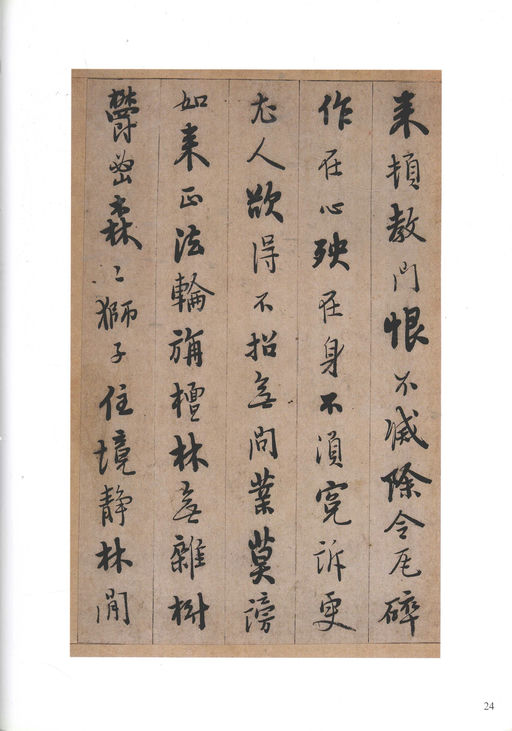 来頓教門恨不滅除令瓦碎
作在心殃在身不須寃訴更
尤人欲得不招無間業莫謗
如来正法輪旃檀林無雜樹
鬱密森〻獅子住境静林間
24